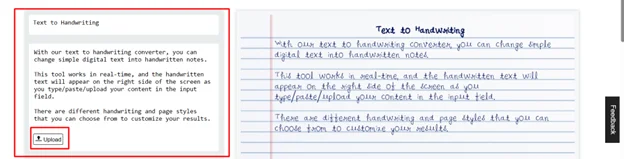 Text to Handwriting
With our text to handwriting converter, you can
change simple digital text into handwritten notes.
This tool works in real-time, and the handwritten
text will appear on the right side of the screen as
you type/paste/upload your content in the input
field.
There are different handwriting and page styles
that you can choose from to customize your results.
Upload
Text to Handwriting
With our text to handwriting converter, you can change simple
digital text into handwritten notes.
This tool works in real-time, and the handwritten text will
appear on the right side of the screen as you
type/paste/upload your content in the input field.
There are different handwriting and page styles that you can
choose from to customize your results.
Feedback